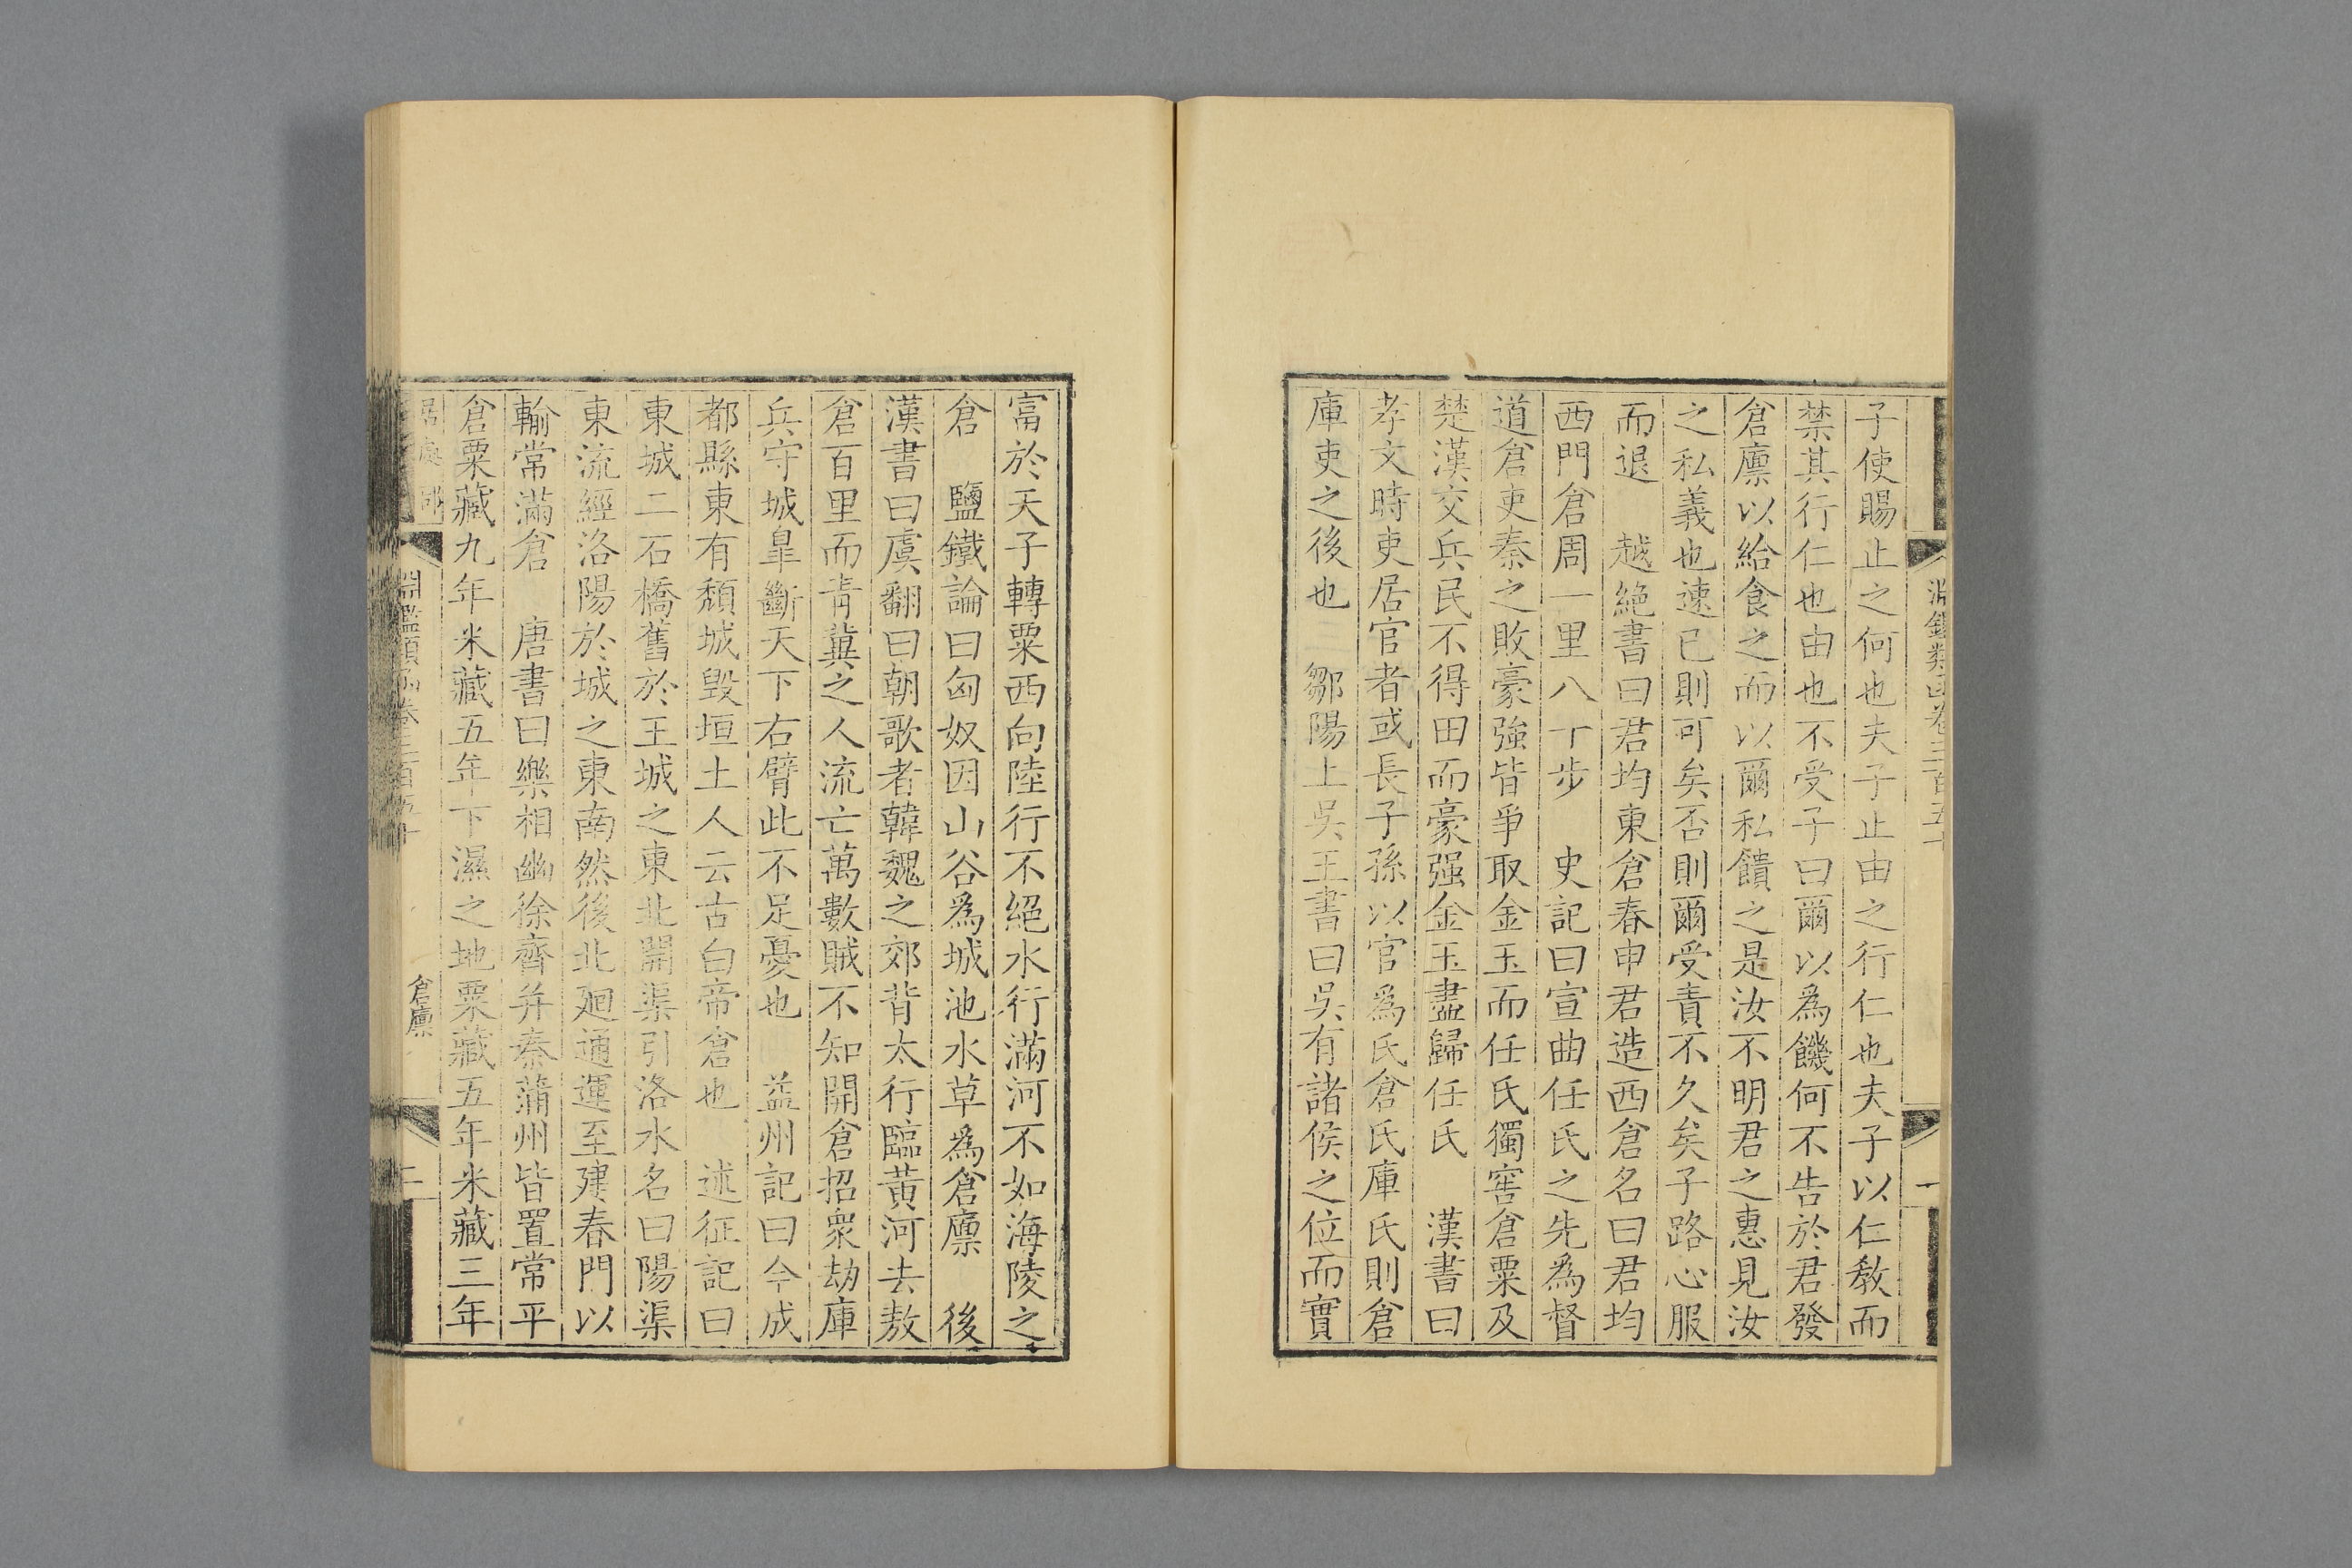 淵鑑類函卷三百五十
一
子使賜止之何也夫子止由之行仁也夫子以仁教而
禁其行仁也由也不受子曰爾以為饑何不告於君發
倉廩以給食之而以爾私饋之是汝不明君之惠見汝
之私義也速已則可矣否則爾受責不久矣子路心服
而退　越絕書曰君均東倉春申君造西倉名曰君均
西門倉周一里八丁步　史記曰宣曲任氏之先為督
道倉吏秦之敗豪強皆爭取金玉而任氏獨窖倉粟及
楚漢交兵民不得田而豪强金玉盡歸任氏　漢書曰
孝文時吏居官者或長子孫以官為氏倉氏庫氏則倉
庫吏之後也　鄒陽上吳王書曰吳有諸侯之位而實
富於天子轉粟西向陸行不絕水行滿河不如海陵之
倉　鹽鐵論曰匈奴因山谷為城池水草為倉廩　後
漢書曰虞翻曰朝歌者韓魏之郊背太行臨黃河去敖
倉百里而青冀之人流亡萬數賊不知開倉招衆劫庫
兵守城臯斷天下右臂此不足憂也　益州記曰今成
都縣東有頹城毀垣土人云古白帝倉也　述征記曰
東城二石橋舊於王城之東北開渠引洛水名曰陽渠
東流經洛陽於城之東南然後北廻通運至建春門以
輸常滿倉　唐書曰樂相幽徐齊并秦蒲州皆置常平
倉粟藏九年米藏五年下濕之地粟藏五年米藏三年
淵鑑類函卷三百五十
倉廩
二